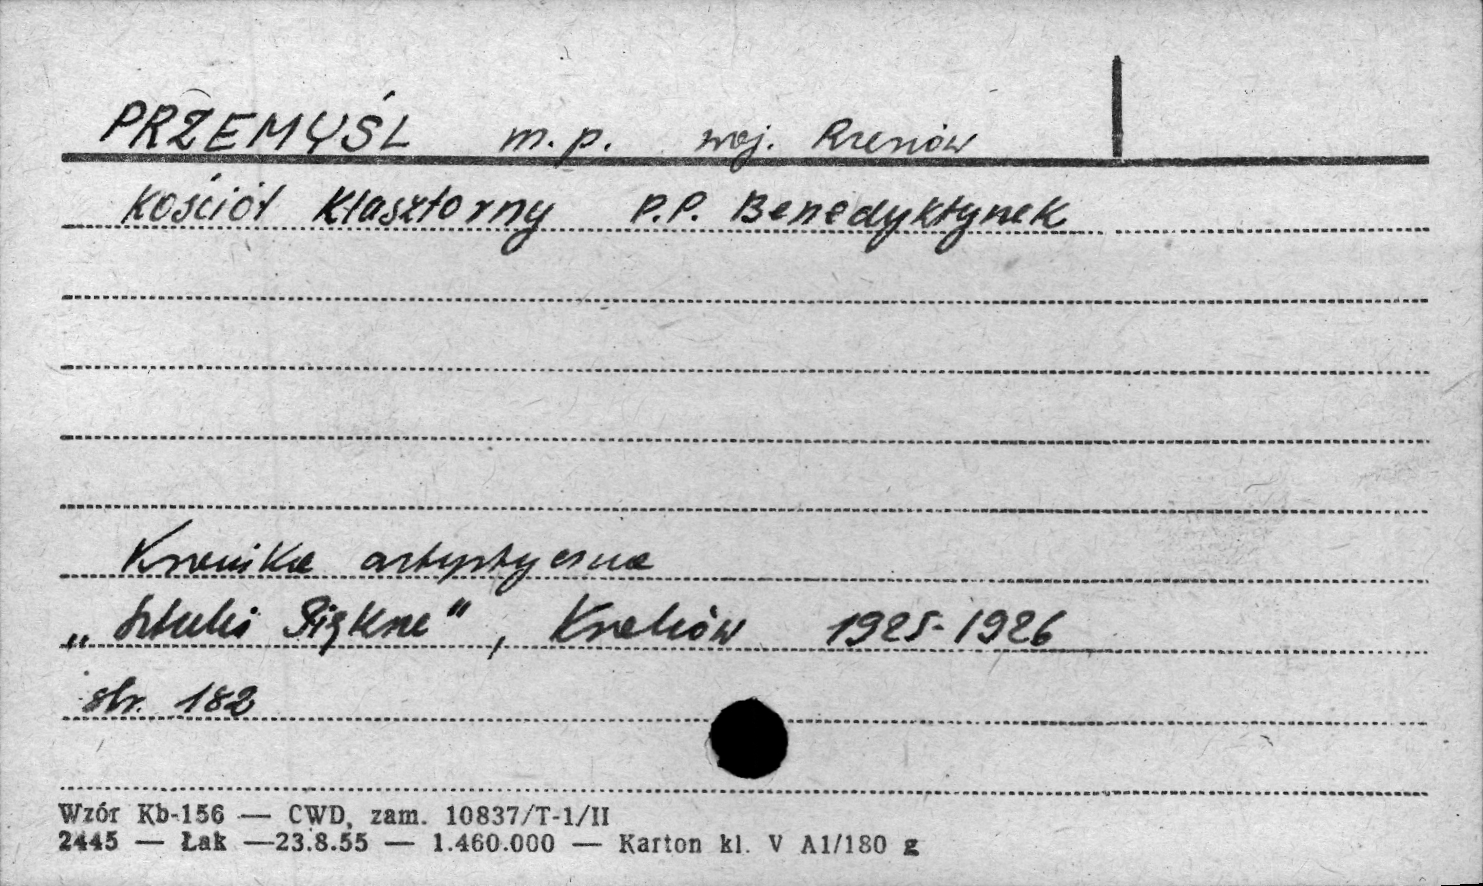 PRZEMYŚL m.p. woj. Rzeszów
Kościół Klasztorny P.P. Benedyktynek
Kronika artystyczna
„Sztuki Piękne", Kraków 1925-1926
str. 182
Wzór Kb-156 — CWD, zam. 10837/T-1/II
2445 — Łak —23.8.55 — 1.460.000 — Karton kl. V A1/180 g